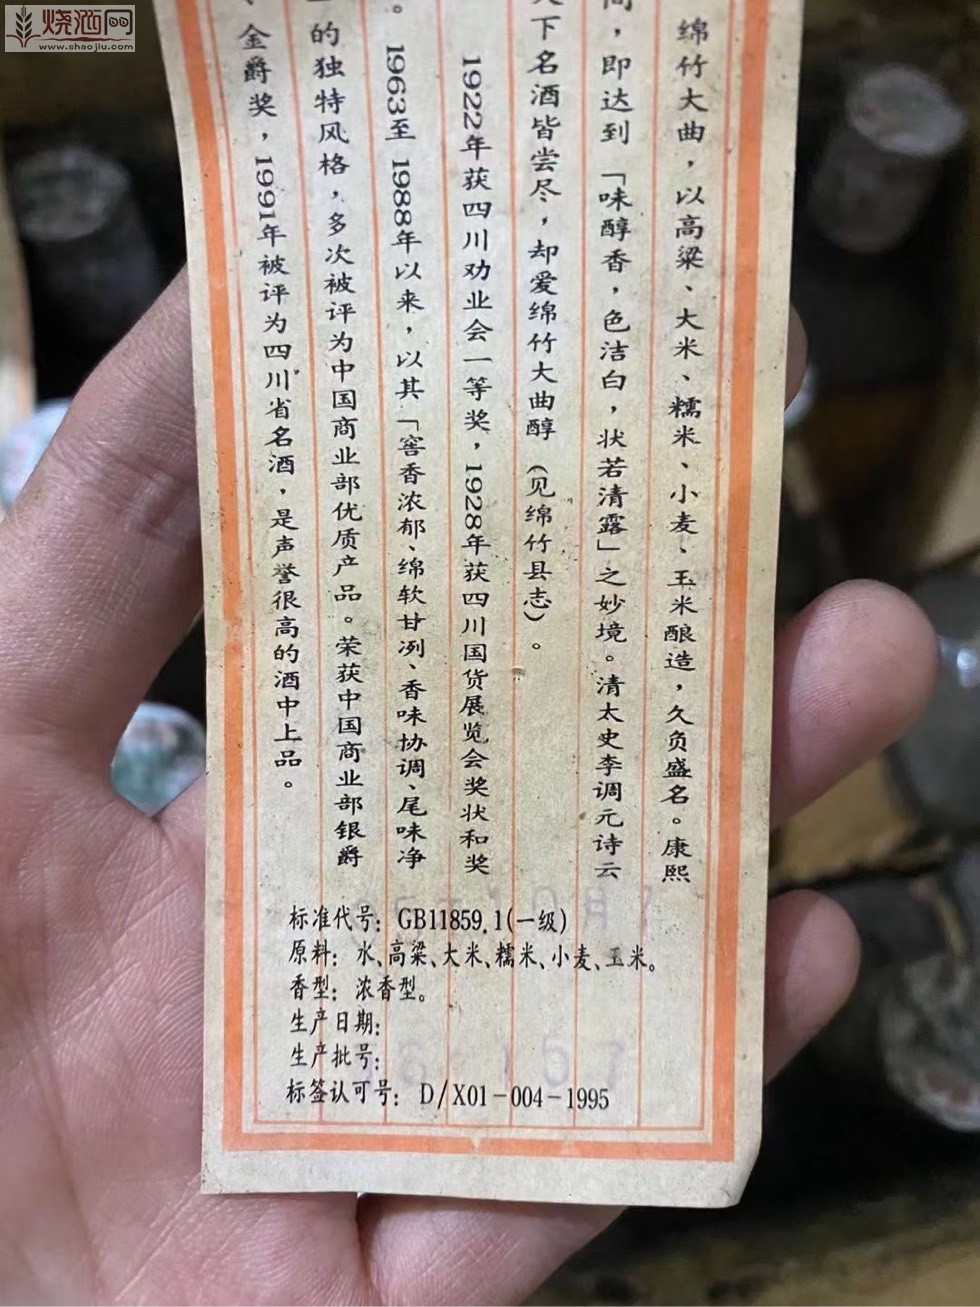 烧酒网
www.shaojiu.com
绵竹大曲，以高粱、大米、糯米、小麦、玉米酿造，久负盛名。康熙
间，即达到「味醇香，色洁白，状若清露」之妙境。清太史李调元诗云
天下名酒皆尝尽，却爱绵竹大曲醇（见绵竹县志）。
1922年获四川劝业会一等奖，1928年获四川国货展览会奖状和奖
。1963至1988年以来，以其「窖香浓郁、绵软甘冽、香味协调、尾味净
的独特风格，多次被评为中国商业部优质产品。荣获中国商业部银爵
、金爵奖，1991年被评为四川省名酒，是声誉很高的酒中上品。
标准代号：GB11859.1(一级)
原料：水、高粱、大米、糯米、小麦、玉米。
香型：浓香型。
生产日期：
生产批号：
标签认可号：D/X01-004-1995